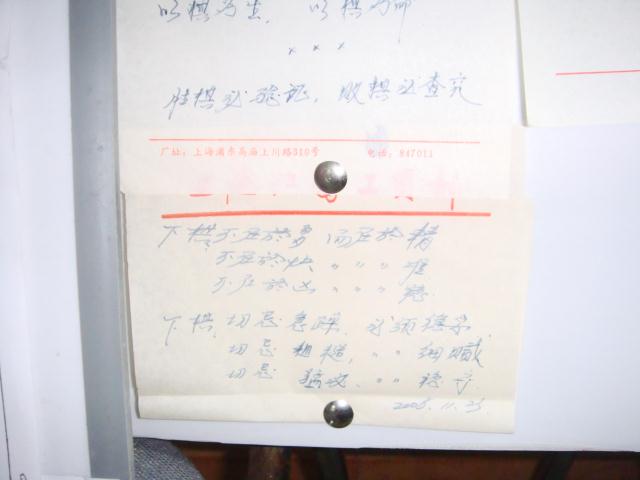 以棋为生, 以棋为师
× × ×
胜棋必验证, 败棋必查究
厂址: 上海浦东高庙上川路310号 电话: 847011
下棋不在於勇 而在於精
不在於快 〃 〃 〃 准
不在於凶 〃 〃 〃 稳
下棋, 切忌急躁, 必须稳
切忌粗糙, 〃 〃 细腻
切忌猛攻, 〃 〃 稳守
11.25